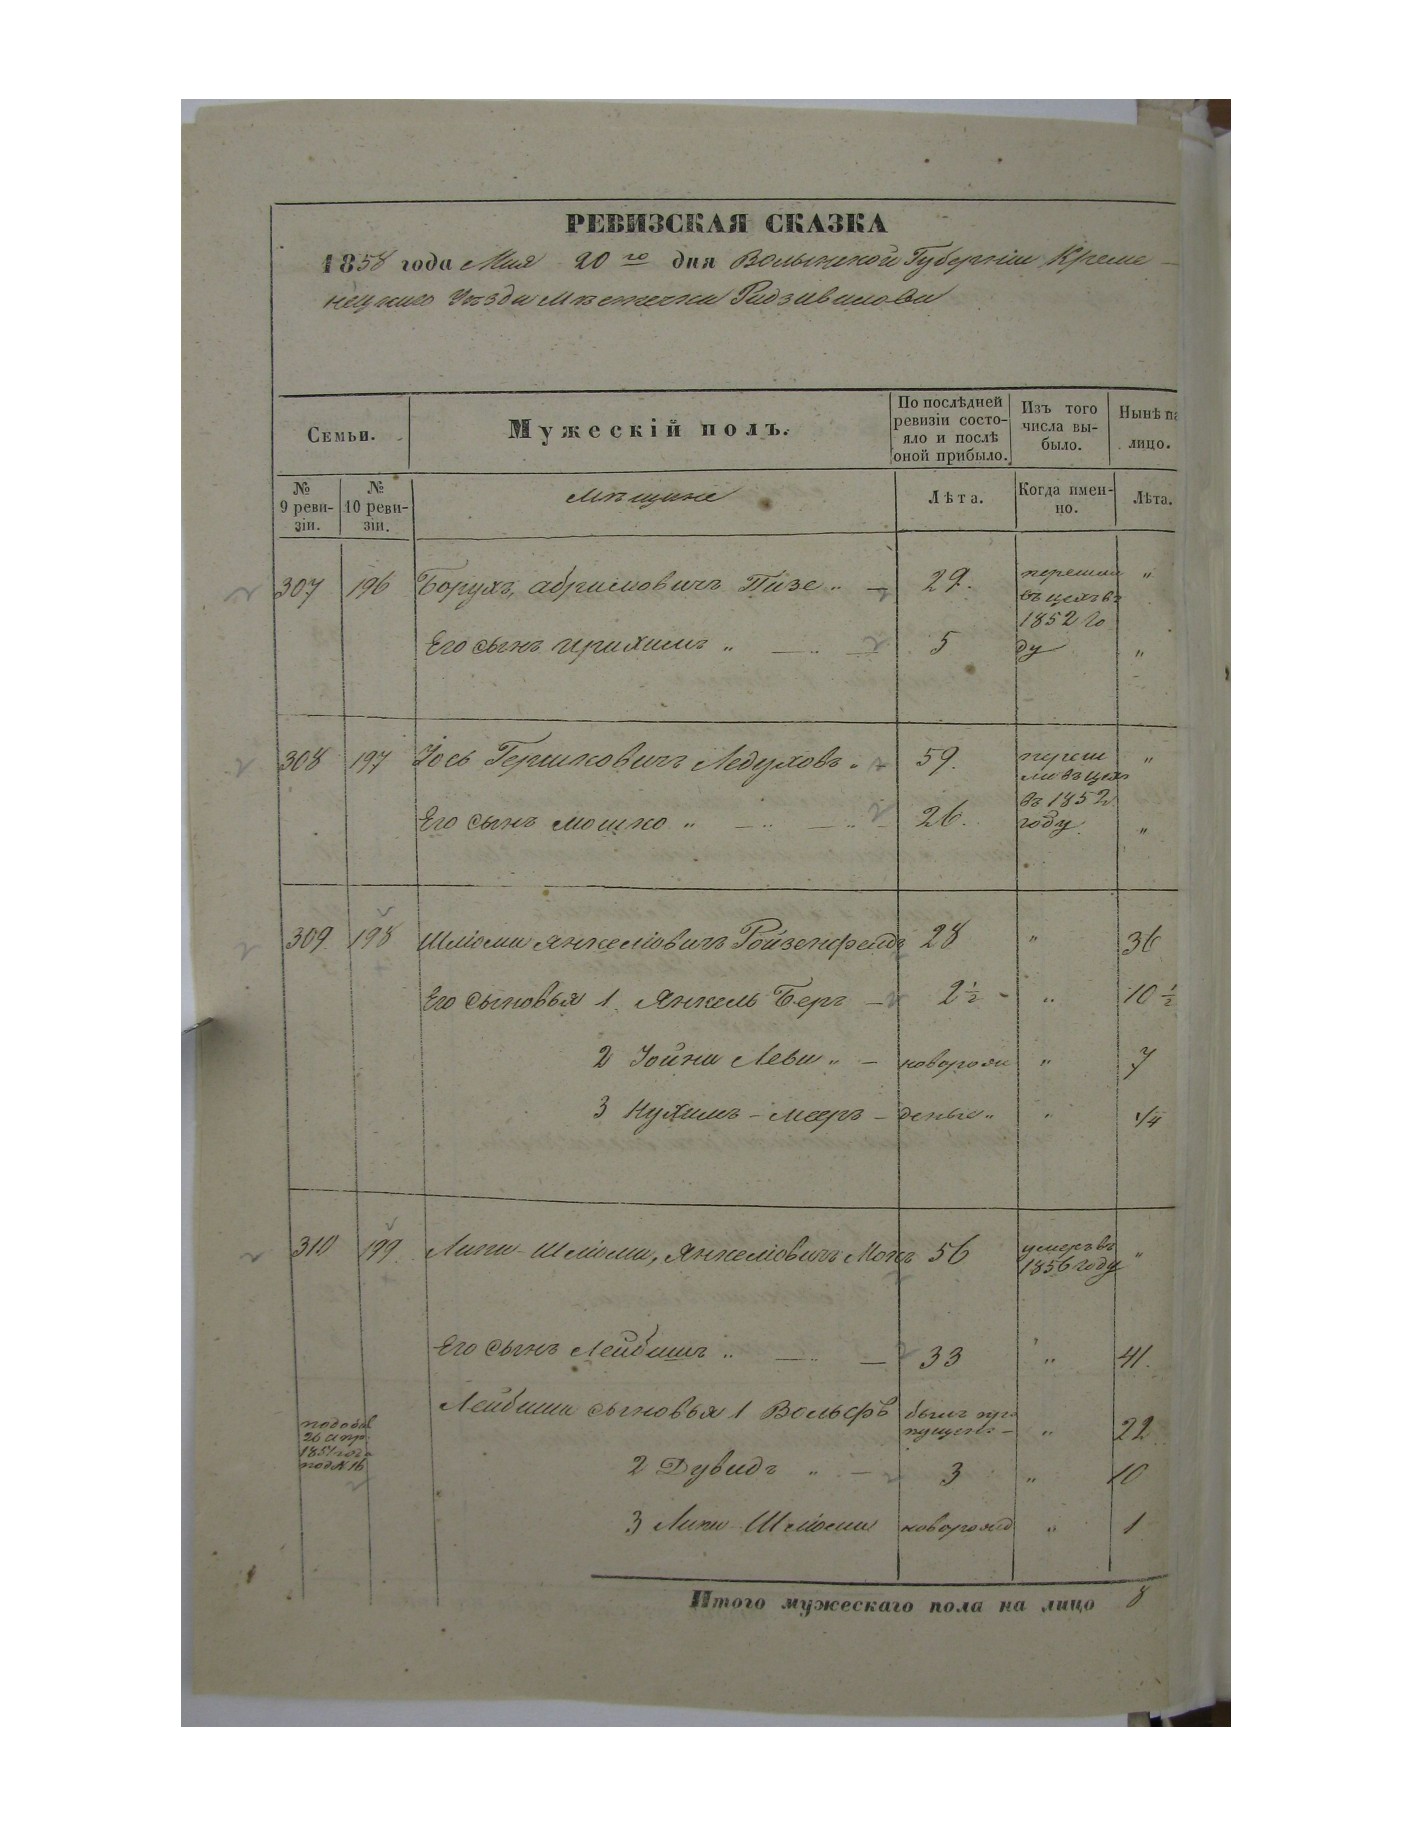 РЕВИЗСКАЯ СКАЗКА
1858 года Мая 20го дня Волынской Губерніи Креме-
нецкаго Уѣзда мѣстечка Радзивилова
Семьи.
Мужескій полъ.
По послѣдней ревизіи состо-яло и послѣ оной прибыло.
Изъ того числа вы-было.
Нынѣ на лицо.
№ 9 реви-зіи.
№ 10 реви-зіи.
Мѣщане
Лѣта.
Когда имен-но.
Лѣта.
307 196 Борухъ Абрамовичъ Пизе „ — 29. перешли „
въ цехъ въ
1852 го
Его сынъ „ — „ — 5 ду „
308 197 Іось Гершковичъ Ледуховъ „ - 59. переш „
ли въ цехъ
въ 1852
Его сынъ Мошко „ — „ — „ — 26. году „
309 198 Шліома Янкеліовичъ Ройзенфельдъ 28 „ 36
Его сыновья 1. Янкель Беръ — 2½ - „ 10½
2 Іойна Леви „ — новорож „ 7
3 Нухимъ - Мееръ - деные „ „ 1/4
310 199 Липа-Шліома, Янкеліовичъ Мокъ 56 умеръ въ „
1856 году
Его сынъ Лейбишъ „ — „ — 33 „ 41.
Лейбиша сыновья 1 Вольфъ былъ про „ 22
пущенъ -
подобав
26 Апр
1851 года
под № 16
2 Дувидъ „ — 3 „ 10
3 Липа Шліома новорожд „ 1
Итого мужескаго пола на лицо 8